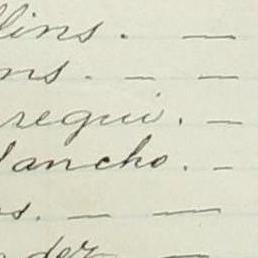 llins. —
ns. — —
regui. —
lancho. —
os. — —
dez —